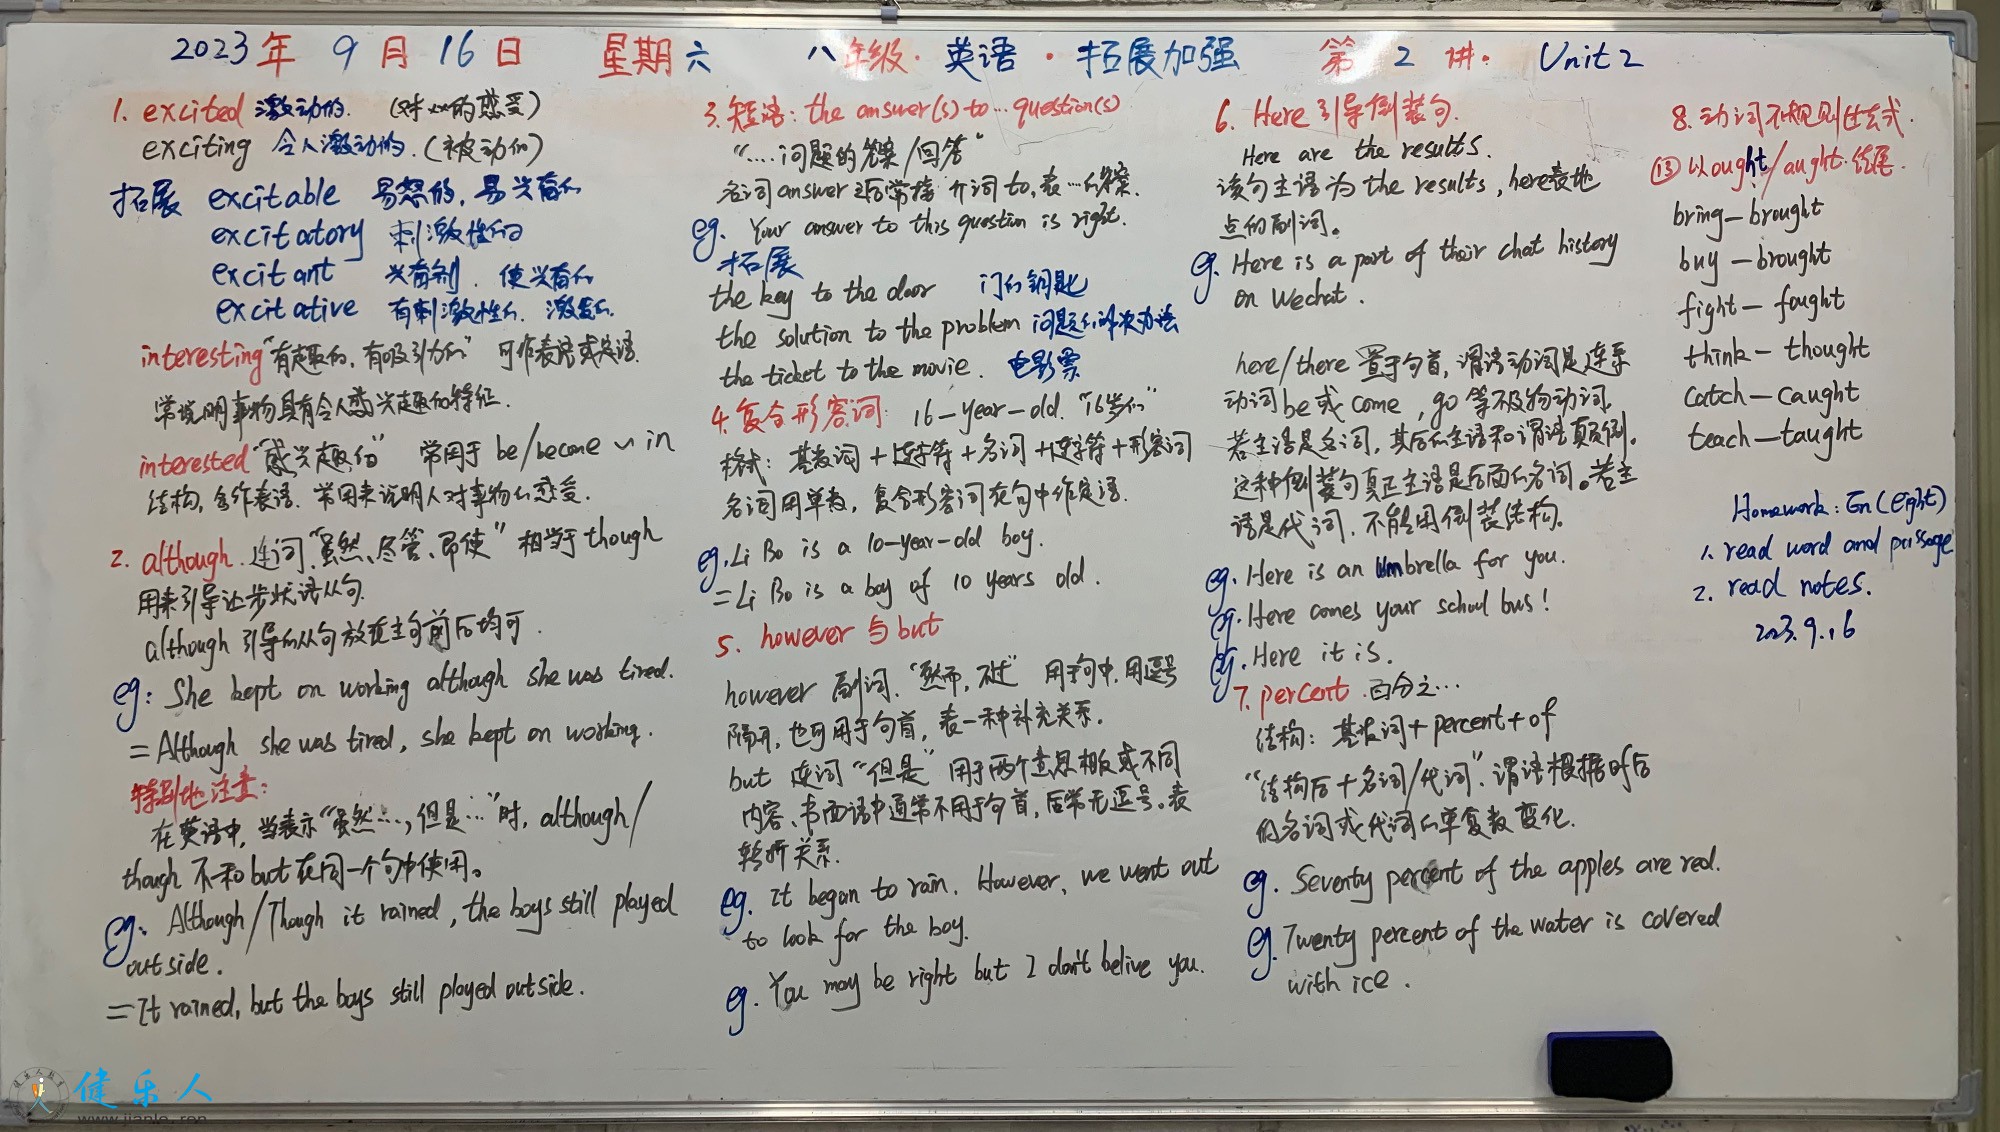 2023年 9月16日 星期六 八年级·英语·拓展加强 第2讲· Unit2
1. excited 激动的. (对…的感受)
exciting 令人激动的.(被动的)
拓展 excitable 易怒的, 易兴奋的
excitatory 刺激性的
excitant 兴奋剂. 使兴奋的
excitative 有刺激性的. 激发的.
interesting“有趣的, 有吸引力的” 可作表语或定语.
常说明事物具有令人感兴趣的特征.
interested“感兴趣的” 常用于 be/become ~ in
结构, 多作表语. 常用来说明人对事物的感受.
2. although. 连词.“虽然、尽管、即使” 相当于 though
用来引导让步状语从句.
although 引导的从句放在主句前后均可.
eg: She kept on working although she was tired.
= Although she was tired, she kept on working.
特别地注意:
在英语中, 当表示“虽然…, 但是…”时, although/
though 不和but在同一个句中使用。
eg: Although/Though it rained, the boys still played
outside.
= It rained, but the boys still played outside.
3. 短语: the answer(s) to … question(s)
“….问题的答案/回答”
名词 answer 之后常接 介词 to, 表…的答案.
eg. Your answer to this question is right.
拓展
the key to the door 门的钥匙
the solution to the problem 问题的解决办法
the ticket to the movie. 电影票
4. 复合形容词: 16-year-old. “16岁的”
格式: 基数词+连字符+名词+连字符+形容词
名词用单数, 复合形容词在句中作定语.
eg. Li Bo is a 10-year-old boy.
= Li Bo is a boy of 10 years old.
5. however 与 but
however 副词. “然而, 不过” 用于句中, 用逗号
隔开, 也可用于句首, 表一种补充关系.
but 连词 “但是” 用于两个意思相反或不同
内容、书面语中通常不用于句首, 后常无逗号。表
转折关系.
eg. It began to rain. However, we went out
to look for the boy.
eg. You may be right but I don't belive you.
6. Here 引导倒装句.
Here are the results.
该句主语为 the results, here表地
点的副词。
eg. Here is a part of their chat history
on Wechat.
here/there 置于句首, 谓语动词是连系
动词be或 come, go 等不及物动词.
若主语是名词, 其后的主语和谓语须倒。
这种倒装句真正主语是后面的名词。若主
语是代词. 不能用倒装结构。
eg. Here is an umbrella for you.
eg. Here comes your school bus!
eg. Here it is.
7. percent. 百分之…
结构: 基数词+percent+of
“结构后+名词/代词”. 谓语根据of后
的名词或代词的单复数变化.
eg. Seventy percent of the apples are red.
eg. Twenty percent of the water is covered
with ice.
8. 动词不规则过去式.
⑬ 以ought/aught 结尾.
bring—brought
buy—brought
fight—fought
think—thought
catch—caught
teach—taught
Homework: En(Eight)
1. read word and passage
2. read notes.
2023.9.16
健乐人
www.jianle.ren